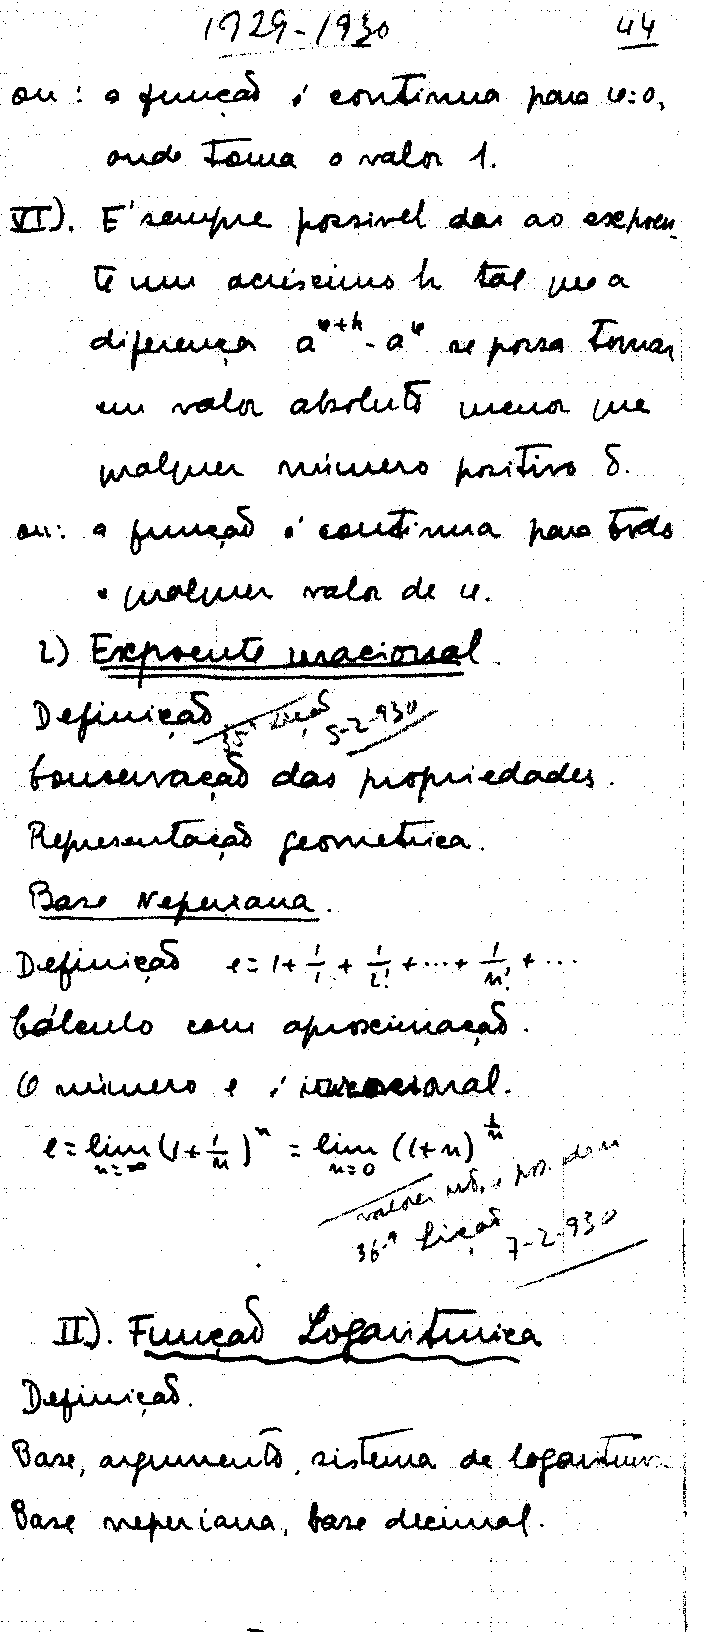 1929-1930 44
ou: a função é contínua para u=0,
onde toma o valor 1.
VI). E' sempre possivel dar ao expoen-
te um acréscimo h tal que a
diferença a^{u+h} - a^u se possa tornar
em valor absoluto menor que
qualquer número positivo δ.
ou: a função é contínua para todo
e qualquer valor de u.
2) Expoente irracional.
Definição
35ª Lição 5-2-930
Conservação das propriedades.
Representação geometrica.
Base Neperiana.
Definição e = 1 + 1/1 + 1/2! + ... + 1/n! + ...
Cálculo com aproximação.
O número e é irracional.
e = lim_{n=∞} (1 + 1/n)^n = lim_{n=0} (1+n)^{1/n}
valores
36-ª Lição 7-2-930
II). Função Logarítmica
Definição.
Base, argumento, sistema de logaritmos.
Base neperiana, base decimal.